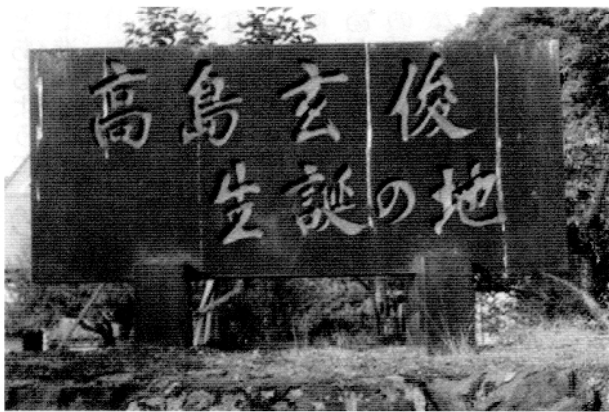 高島玄俊
生誕の地